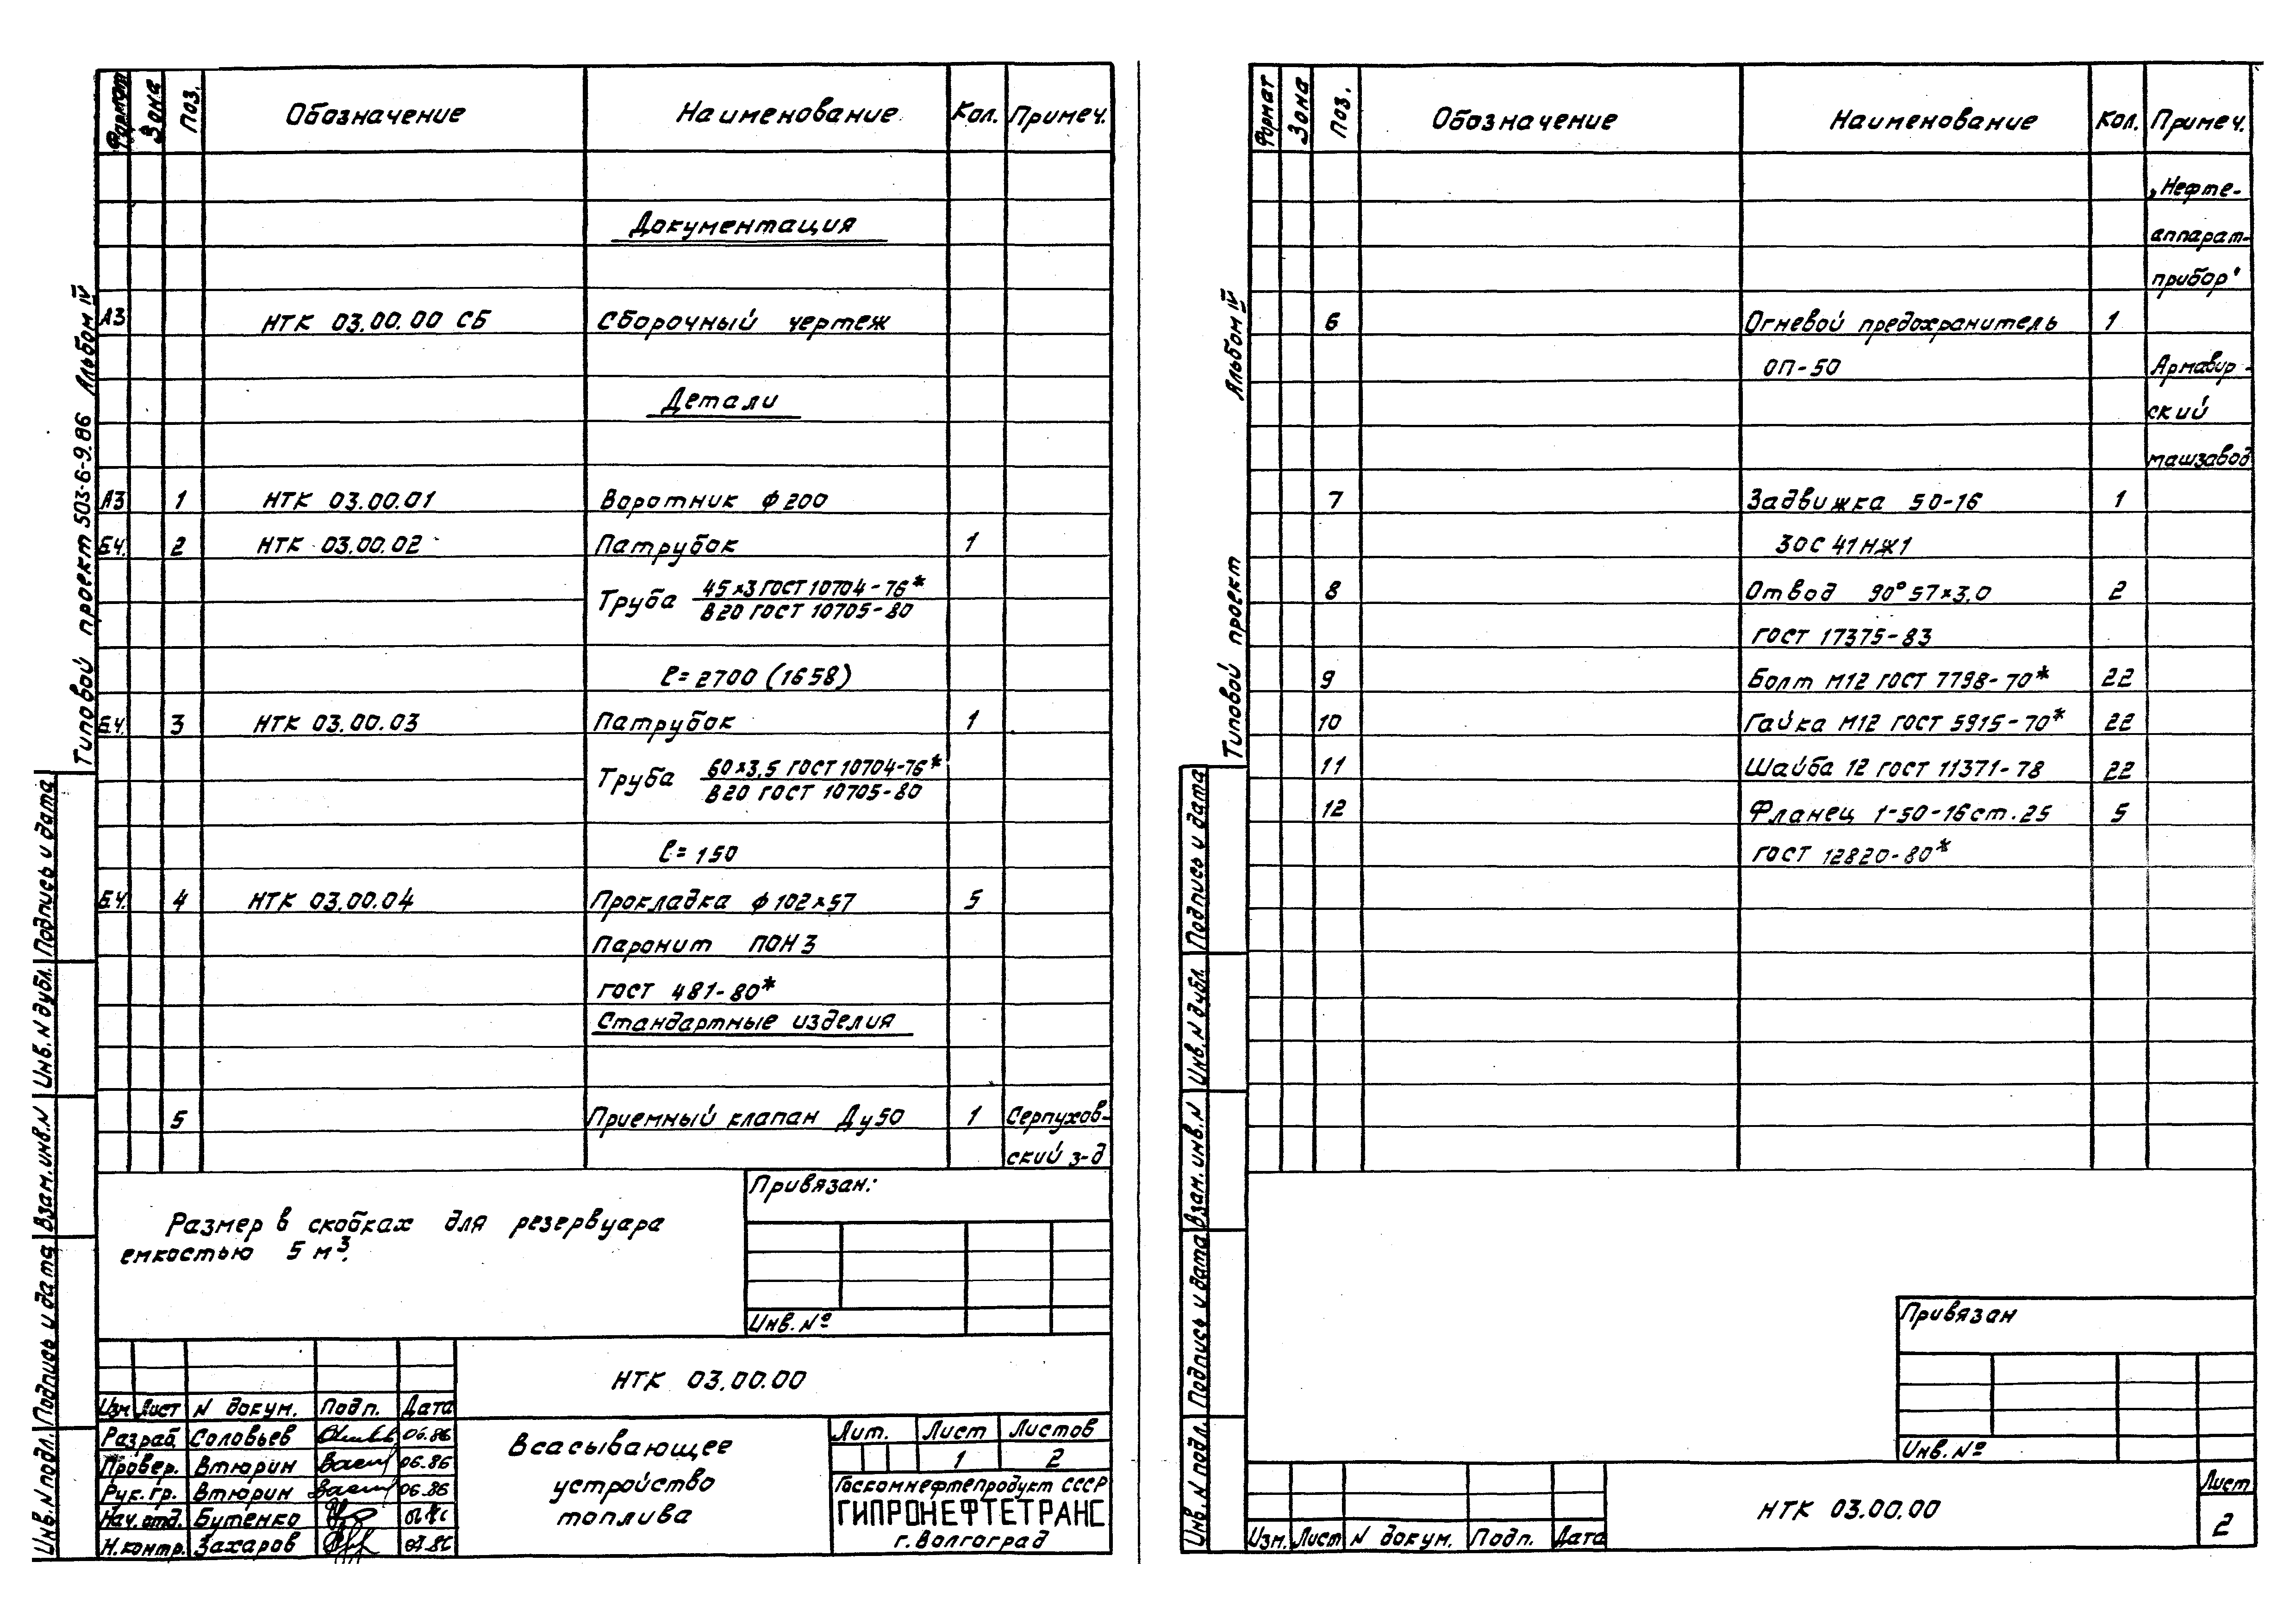 Формат Зона Поз. Обозначение Наименование Кол. Примеч.
Документация
А3 НТК 03.00.00 СБ Сборочный чертеж
Детали
А3 1 НТК 03.00.01 Воротник ф 200
Б.Ч. 2 НТК 03.00.02 Патрубок 1
Труба 45×3 ГОСТ 10704-76*
В20 ГОСТ 10705-80
ℓ=2700 (1658)
Б.Ч. 3 НТК 03.00.03 Патрубок 1
Труба 60×3,5 ГОСТ 10704-76*
В20 ГОСТ 10705-80
ℓ=150
Б.Ч. 4 НТК 03.00.04 Прокладка ф 102×57 5
Паронит ПОН 3
ГОСТ 481-80*
Стандартные изделия
5 Приемный клапан Ду 50 1 Серпухов-
ский з-д
Типовой проект 503-6-9.86 Альбом IV
Подпись и дата
Инв. N дубл.
Взам. инв. N
Подпись и дата
Инв. N подл.
Размер в скобках для резервуара
емкостью 5 м³.
Привязан:
Инв. №
НТК 03.00.00
Изм Лист N докум. Подп. Дата
Разраб. Соловьев 06.86
Провер. Втюрин 06.86
Рук. гр. Втюрин 06.86
Нач. отд. Бутенко
Н. контр. Захаров
Всасывающее
устройство
топлива
Лит. Лист Листов
1 2
Госкомнефтепродукт СССР
ГИПРОНЕФТЕТРАНС
г. Волгоград
Формат Зона Поз. Обозначение Наименование Кол. Примеч.
„Нефте-
аппарат-
прибор"
6 Огневой предохранитель 1
ОП-50 Армавир-
ский
машзавод
7 Задвижка 50-16 1
30С 41НЖ1
8 Отвод 90° 57×3,0 2
ГОСТ 17375-83
9 Болт М12 ГОСТ 7798-70* 22
10 Гайка М12 ГОСТ 5915-70* 22
11 Шайба 12 ГОСТ 11371-78 22
12 Фланец 1-50-16 ст.25 5
ГОСТ 12820-80*
Типовой проект Альбом IV
Подпись и дата
Инв. N дубл.
Взам. инв. N
Подпись и дата
Инв. N подл.
Привязан
Инв. №
Изм. Лист N докум. Подп. Дата
НТК 03.00.00
Лист
2